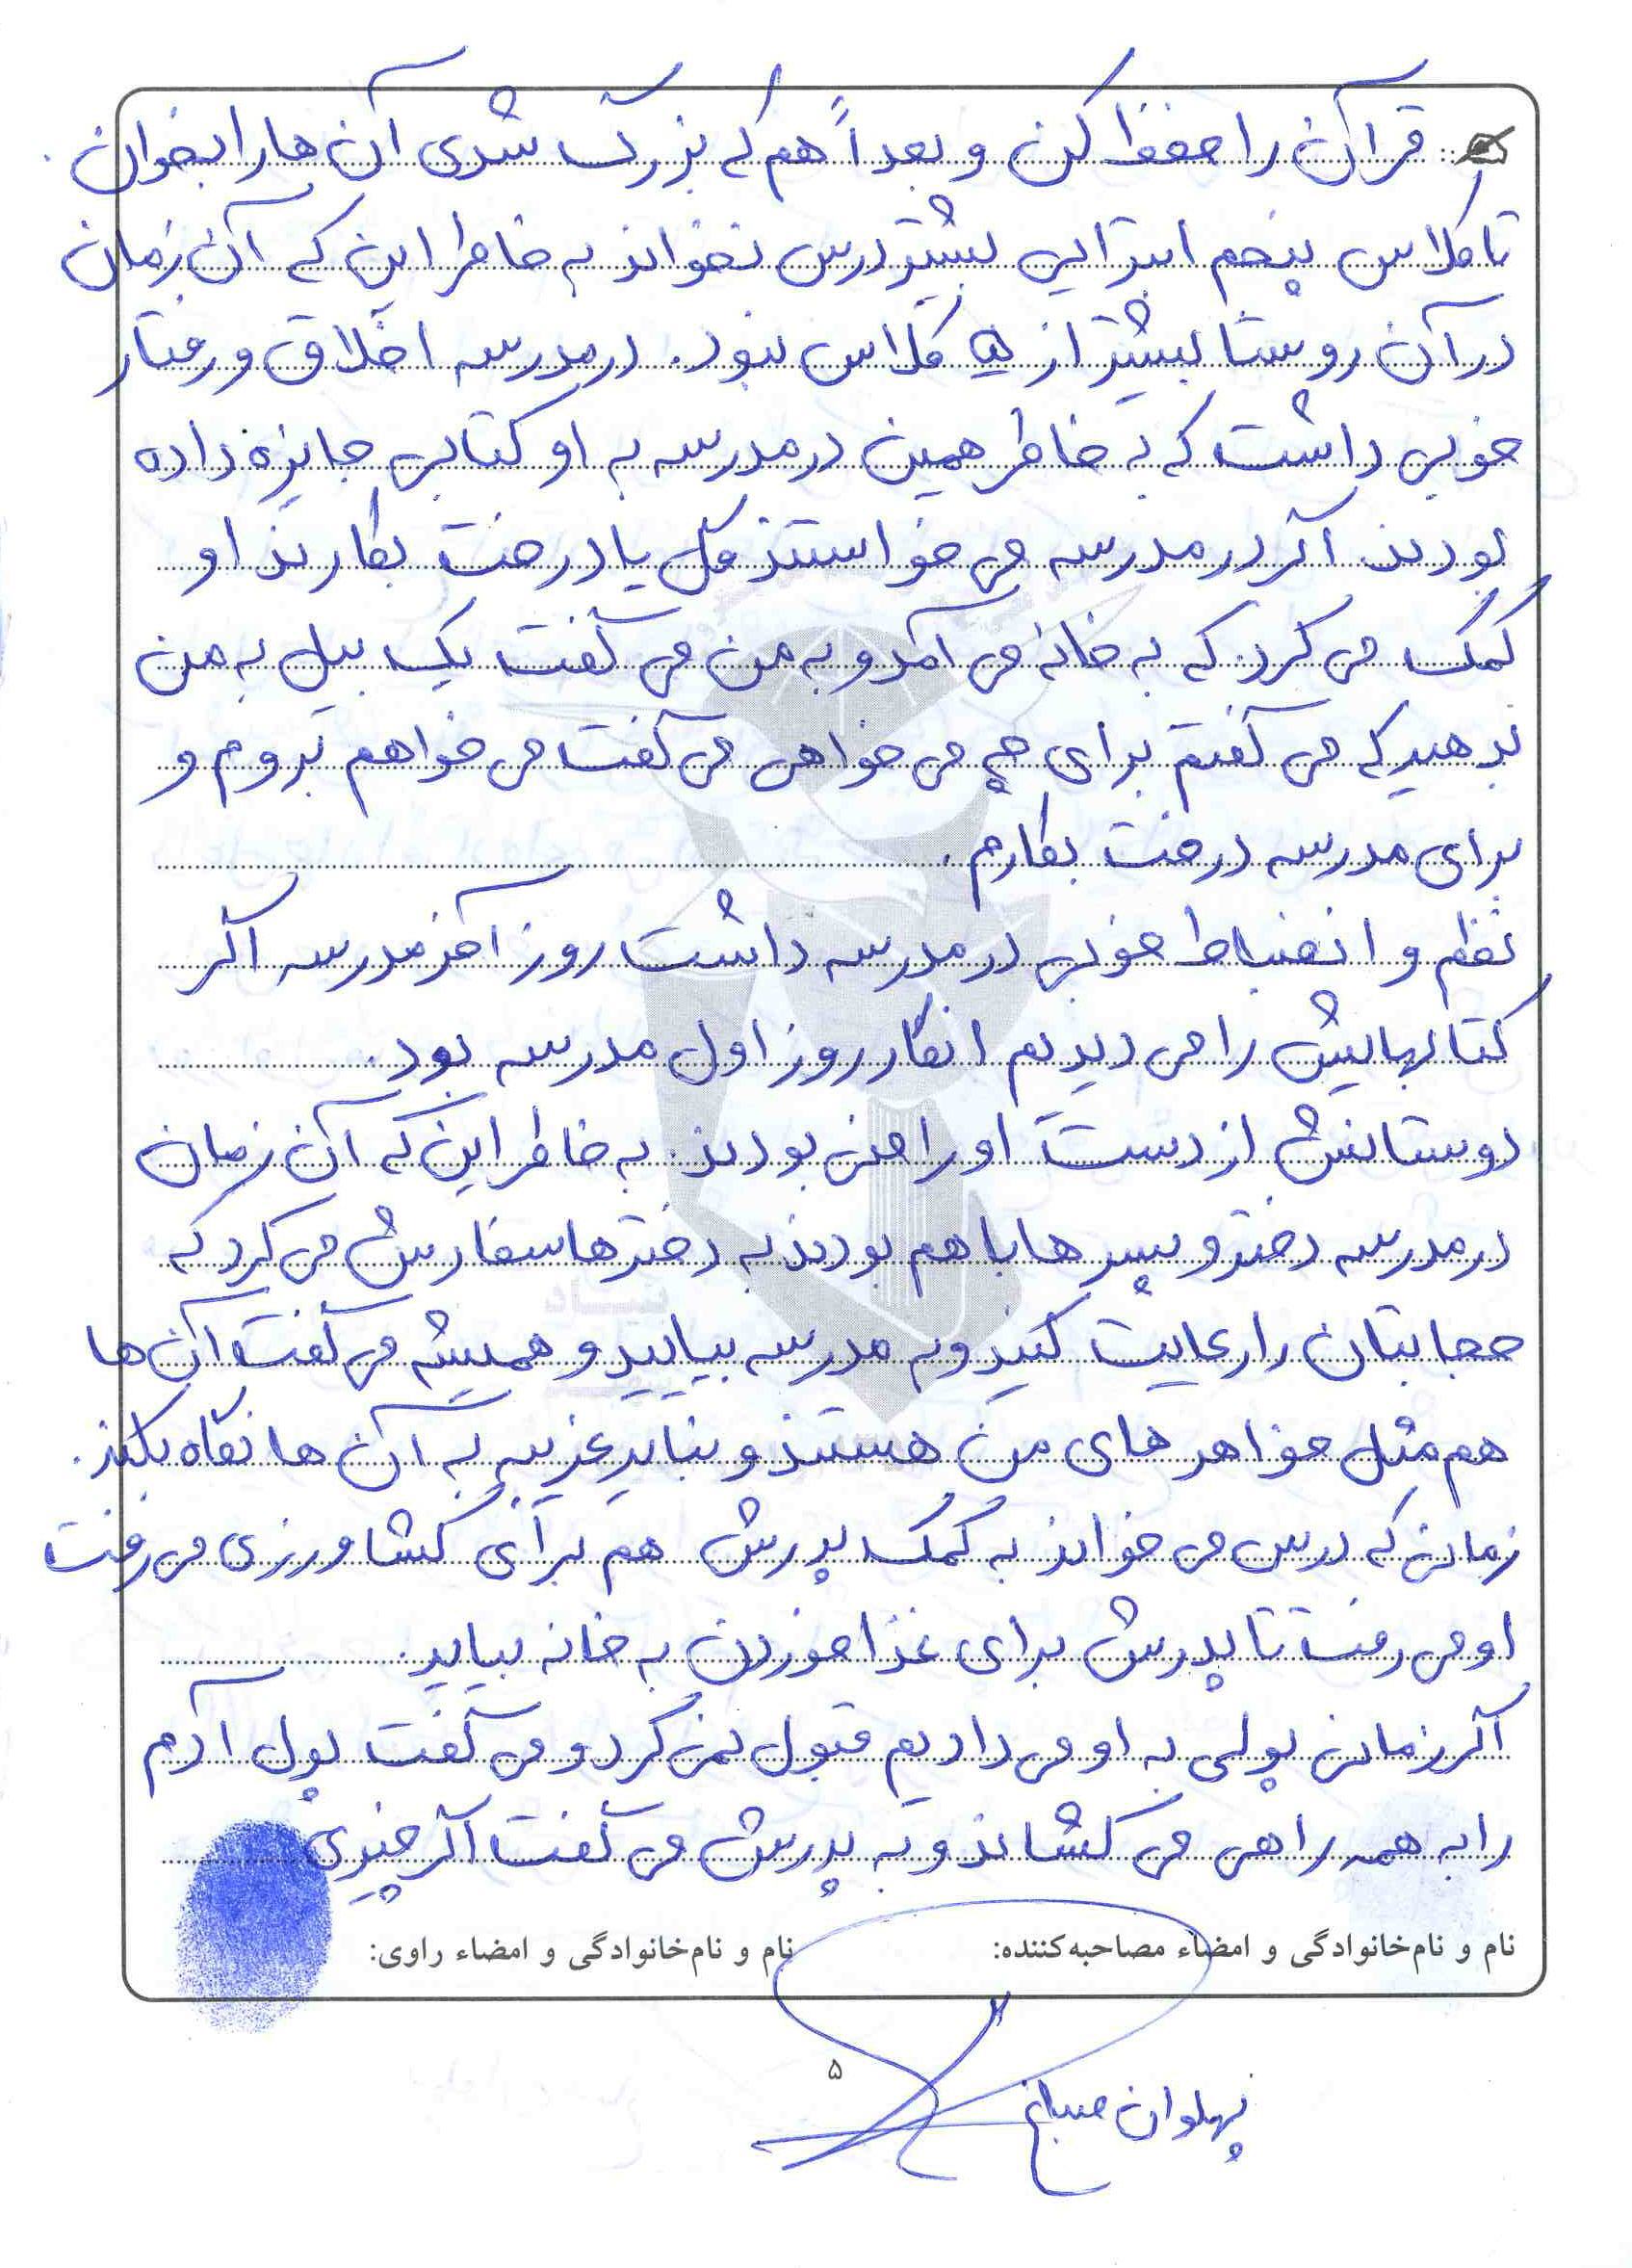 قرآن را حفظ کن و بعداً هم که بزرگ شدی آن ها را بخوان.
تا کلاس پنجم ابتدایی بیشتر درس نخواند به خاطر این که آن زمان
در آن روستا بیشتر از ۵ کلاس نبود. در مدرسه اخلاق و رفتار
خوبی داشت که به خاطر همین در مدرسه به او کتابی جایزه داده
بودند. اگر در مدرسه می خواستند گل یا درخت بکارند او
کمک می کرد. که به خانه می آمد و به من می گفت یک بیل به من
بدهید که می گفتم برای چه می خواهی می گفت می خواهم بروم و
برای مدرسه درخت بکارم.
نظم و انضباط خوبی در مدرسه داشت روز آخر مدرسه اگر
کتابهایش را می دیدیم انگار روز اول مدرسه بود.
دوستانش از دست او راضی بودند. به خاطر این که آن زمان
در مدرسه دختر و پسر ها با هم بودند به دخترها سفارش می کرد که
حجابتان را رعایت کنید و به مدرسه بیایید و همیشه می گفت آن ها
هم مثل خواهر های من هستند و نباید غریبه به آن ها نگاه بکند.
زمانی که درس می خواند به کمک پدرش هم برای کشاورزی می رفت
او می رفت تا پدرش برای غذا خوردن به خانه بیاید.
اگر زمانی پولی به او می دادیم قبول نمی کرد و می گفت پول آدم
را به همه راهی می کشاند و به پدرش می گفت اگر چیزی
نام و نام‌خانوادگی و امضاء مصاحبه‌کننده:
نام و نام‌خانوادگی و امضاء راوی:
۵
پهلوان صباغ